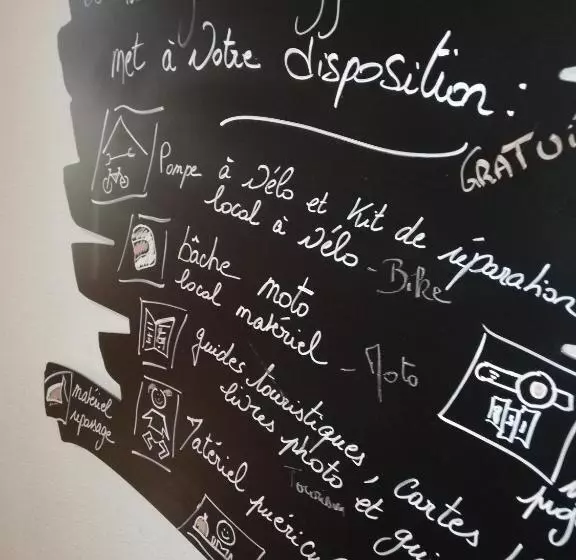 met à Votre disposition :
GRATUI
Pompe à Vélo et Kit de réparation
local à Vélo - Bike
bâche moto
local matériel - Moto
guides touristiques, cartes
livres photo et gui
matériel
repassage
Matériel puéricu